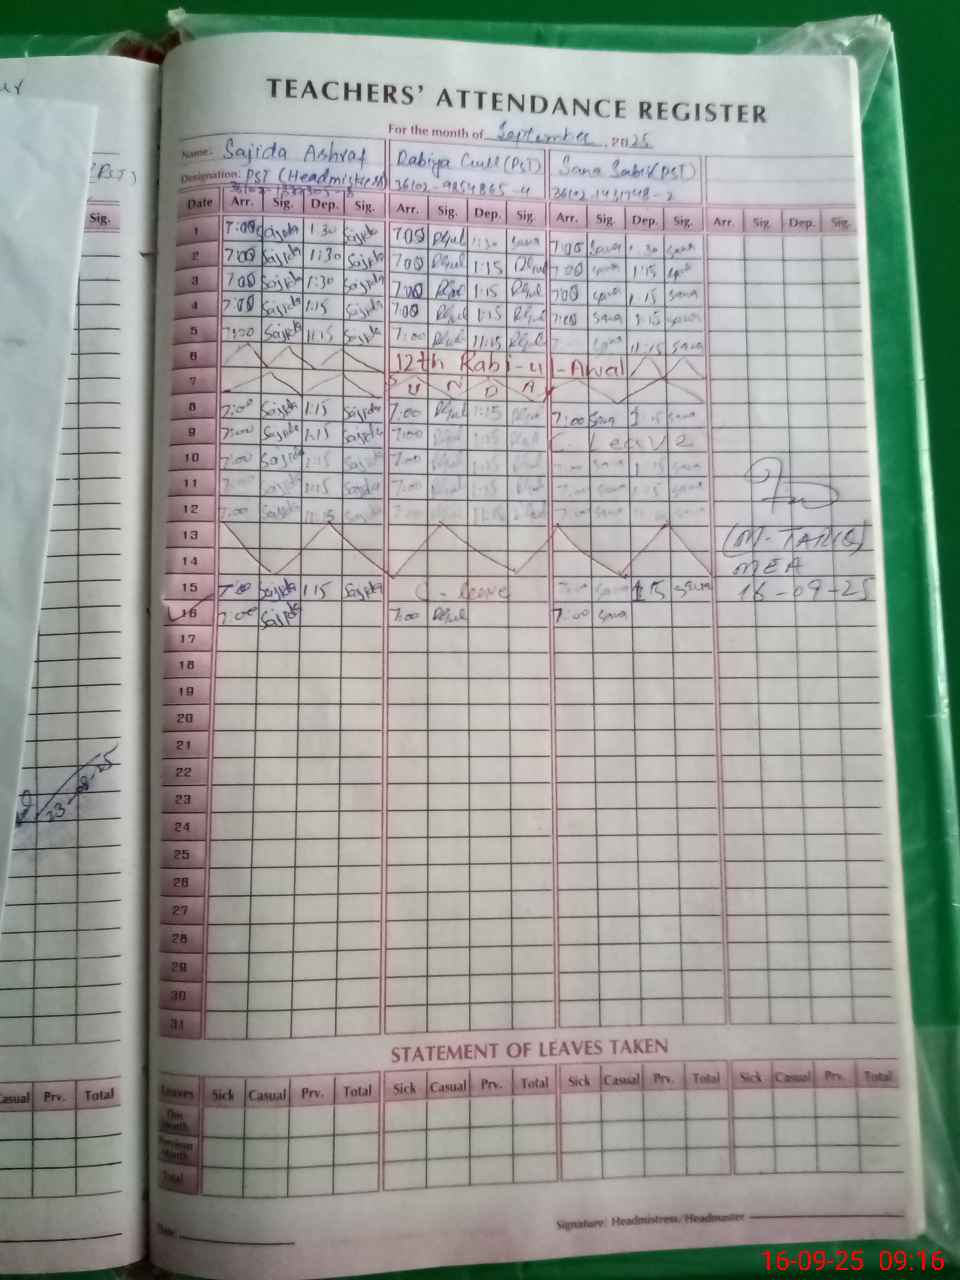 TEACHERS' ATTENDANCE REGISTER
For the month of September, 2025
Name: Sajida Ashraf Rabiya Gull (PST) Sana Sabir (PST)
Designation: PST (Headmistress) 36102-9854865-4
Date Arr. Sig. Dep. Sig. Arr. Sig. Dep. Sig. Arr. Sig. Dep. Sig. Arr. Sig. Dep. Sig.
1 7:00 Sajida 1:30 Sajida 7:00 RGul 1:30 7:00 Sana 1:30 Sana
2 7:00 Sajida 1:30 Sajida 7:00 RGul 1:15 RGul 7:00 Sana 1:15 Sana
3 7:00 Sajida 1:30 Sajida 7:00 RGul 1:15 RGul 7:00 Sana 1:15 Sana
4 7:00 Sajida 1:15 Sajida 7:00 RGul 1:15 RGul 7:00 Sana 1:15 Sana
5 7:00 Sajida 11:15 Sajida 7:00 RGul 11:15 RGul Sana 11:15 Sana
6 12th Rabi-ul-Awal
7 S U N D A
8 7:00 Sajida 1:15 Sajida 7:00 RGul 1:15 RGul 7:00 Sana 1:15 Sana
9 7:00 Sajida 1:15 Sajida 7:00 RGul 1:15 RGul C. Leave
10 7:00 Sajida 1:15 Sajida 7:00 RGul 1:15 RGul 7:00 Sana 1:15 Sana
11 7:00 Sajida 1:15 Sajida 7:00 RGul 1:15 RGul 7:00 Sana 1:15 Sana
12 7:00 Sajida 11:15 Sajida 7:00 RGul 11:15 RGul 7:00 Sana 11:15 Sana
13 (M. TARIQ)
14 MEA
15 7:00 Sajida 1:15 Sajida C-leave 7:00 Sana 1:15 Sana 16-09-25
16 7:00 Sajida 7:00 RGul 7:00 Sana
17
18
19
20
21
22
23
24
25
26
27
28
29
30
31
STATEMENT OF LEAVES TAKEN
Leaves Sick Casual Prv. Total Sick Casual Prv. Total Sick Casual Prv. Total Sick Casual Prv. Total
This Month
Previous Month
Total
Date:
Signature: Headmistress/Headmaster
Sig.
23-08-25
Casual Prv. Total
16-09-25 09:16